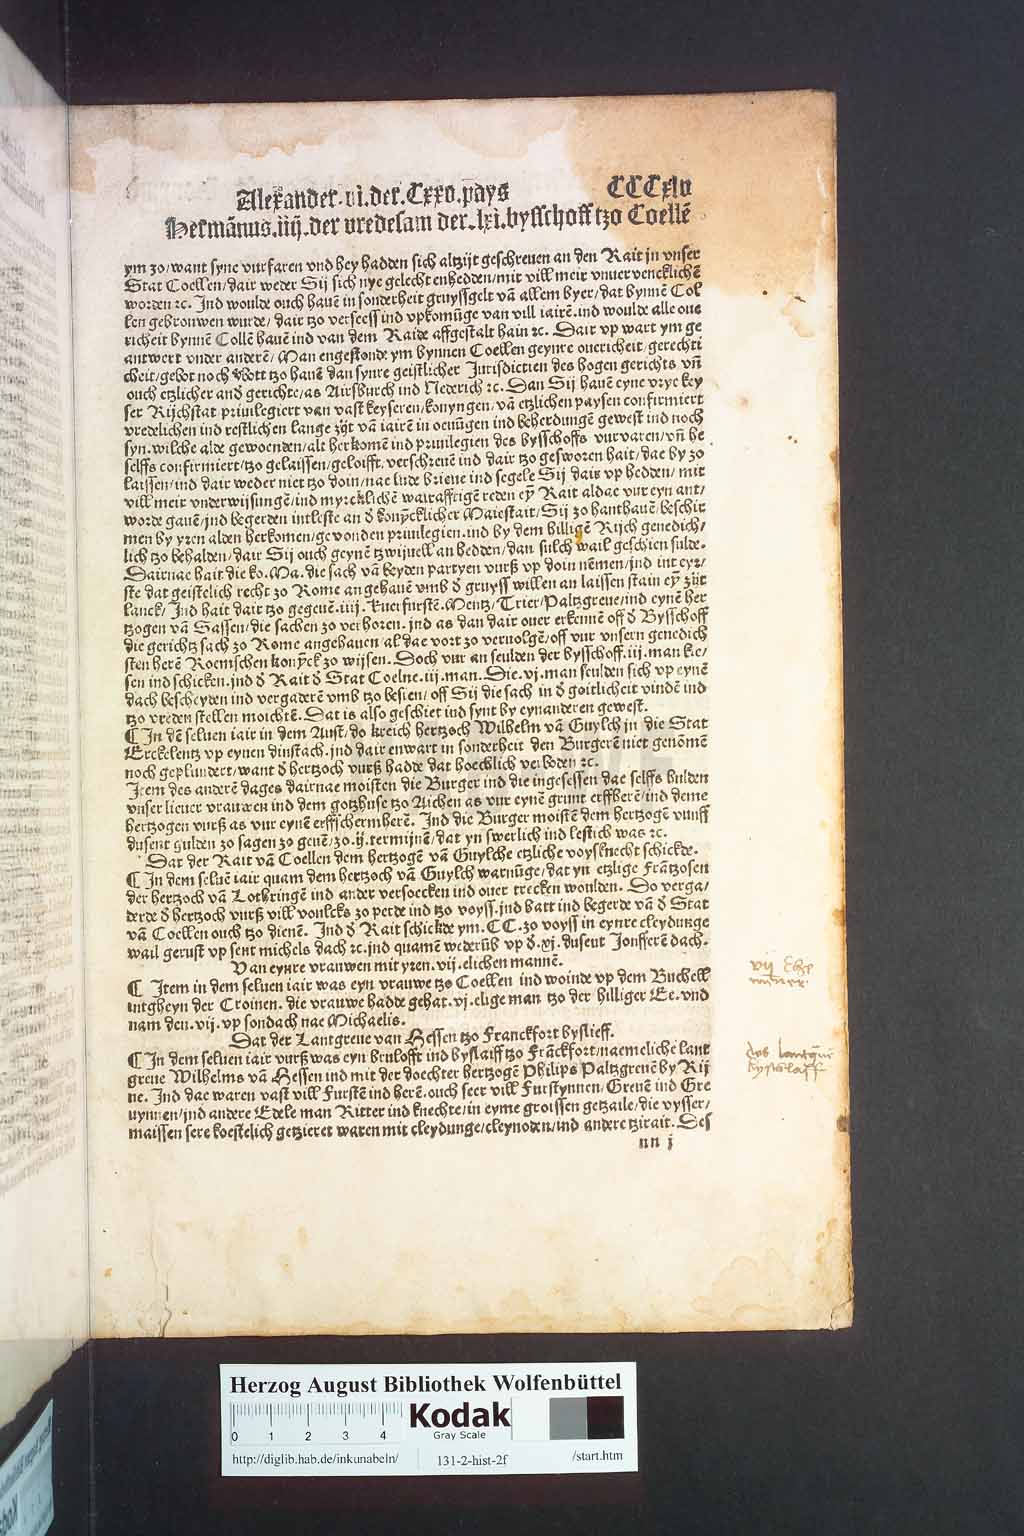 Alexander.vi.der.Cxxv.pays CCCxlv
Hermānus.iiij.der vredesam der.lxi.bysschoff tzo Coellē
ym zo/want syne vurfaren vnd hey hadden sich altzijt geschreuen an den Rait in vnser
Stat Coellen/dair weder Sij sich nye gelecht enhedden/mit vill meir vnuervencklichē
worden ꝛc. Ind woulde ouch hauē in sonderheit gruyssgelt vā allem byer/dat bynnē Col
len gebrouwen wurde/dair tzo verseess ind vpkomūge van vill iairē.ind woulde alle oue
richeit bynnē Collē hauē ind van dem Raide affgestalt hain ꝛc. Dair vp wart ym ge
antwert vnder anderē/Man engestonde ym bynnen Coellen geynre ouericheit/gerechti
cheit/gebot noch vott tzo hauē dan synre geistlicher Jurisdictien des hogen gerichts vñ
ouch etzlicher and̄ gerichte/as Airsburch ind Nederich ꝛc. Dan Sij hauē eyne vrye key
ser Rijchstat priuilegiert van vast keyseren/konyngen/vā etzlichen paysen confirmiert
vredelichen ind restlichen lange zijt vā iairē in oeuūgen ind beherdungē gewest ind noch
syn.wilche alde gewoenden/alt herkomē ind priuilegien des bysschoffs vurvaren/vñ he
selffs confirmiert/tzo gelaissen/geloifft.verschreuē ind dair tzo gesworen hait/dae by zo
laissen/ind dair weder niet tzo doin/nae lude brieue ind segele Sij dais vp hedden/mit
vill meir vnderwijsungē/ind myrcklichē wairafftigē reden eȳ Rait aldae vur eyn ant/
worde gauē/jnd begerden intleste an d̄ konȳcklicher Maiestait/Sij zo hanthauē/beschir
men by yren alden herkomen/gewonden priuilegien.ind by dem billigē Rijch genedich/
lich tzo behalden/dair Sij ouch geynē tzwijuell an hedden/dan sulch wail geschien sulde.
Dairnae hait die ko.Ma.die sach vā beyden partyen vurß vp doin nēmen/jnd int eyr/
ste dat geistelich recht zo Rome angehauē vmb d̄ gruyss willen an laissen stain eȳ zijt
lanck/Ind hait dair tzo gegeuē.iiij.kuerfurstē.Mentz/Trier/Paltzgreue/ind eynē her
tzogen vā Sassen/die sachen zo verhoren.jnd as dan dair ouer erkennē off d̄ Bysschoff
die gerichtz sach zo Rome angehauen aldae vort zo veruolgē/off vur vnsern genedich
sten herē Roemschen konȳck zo wijsen. Doch vur an seulden der bysschoff.iij.man kie/
sen ind schicken.jnd d̄ Rait d̄ Stat Coelne.iij.man. Die.vj.man seulden sich vp eynē
dach bescheyden ind vergaderē vmb tzo besien/off Sij die sach in d̄ goitlicheit vindē ind
tzo vreden stellen moichtē. Dat is also geschiet ind synt by eynanderen gewest.
¶ In dē seluen iair in dem Aust/do kreich hertzoch Wilhelm vā Guylch in die Stat
Erckelentz vp eynen dinstach.jnd dair enwart in sonderheit den Burgerē niet genōmē
noch geplundert/want d̄ hertzoch vurß hadde dat hoechlich verboden ꝛc.
Item des anderē dages dairnae moisten die Burger ind die ingesessen dae selffs hulden
vnser lieuer vrauwen ind dem gotzhuse tzo Aichen as vur eynē grunt erffherē/ind deme
hertzogen vurß as vur eynē erffschermherē. Ind die Burger moistē dem hertzogē vunff
dusent gulden zo sagen zo geuē/zo.ij.termijnē/dat yn swerlich ind lestich was ꝛc.
Dat der Rait vā Coellen dem hertzogē vā Guylche etzliche voysknecht schickde.
¶ In dem seluē iair quam dem hertzoch vā Guylch warnūge/dat yn etzlige Frātzosen
der hertzoch vā Lothringē ind ander versoecken ind ouer trecken woulden. Do verga/
derde d̄ hertzoch vurß vill voulcks zo perde ind tzo voyss.jnd batt ind begerde vā d̄ Stat
vā Coellen ouch tzo dienē. Ind d̄ Rait schickde ym.CC.zo voyss in eynre cleydunge
wail gerust vp sent michels dach ꝛc.jnd quamē wederūb vp d̄.xj.dusent Jonfferē dach.
Van eynre vrauwen mit yren.vij.elichen mannē.
¶ Item in dem seluen iair was eyn vrauwe tzo Coellen ind woinde vp dem Buchell
intgheyn der Croinen. die vrauwe hadde gehat.vj.elige man tzo der hilliger Ee.vnd
nam den.vij.vp sondach nae Michaelis.
Dat der Lantgreue van Hessen tzo Franckfort byslieff.
¶ In dem seluen iair vurß was eyn brulofft ind byslaiff tzo Frāckfort/naemeliche lant
greue Wilhelms vā Hessen ind mit der doechter hertzogē Philips Paltzgreuē by Rij
ne. Ind dae waren vast vill Furstē ind herē.ouch seer vill Furstynnen/Greuē ind Gre
uynnen/jnd andere Edele man Ritter ind knechte/in eyme groissen getzaile/die vysser/
maissen sere koestelich getzieret waren mit cleydunge/cleynoden/ind andere tzirait. Des
nn j
vij
das
byslaff
Herzog August Bibliothek Wolfenbüttel
0 1 2 3 4
Kodak
Gray Scale
http://diglib.hab.de/inkunabeln/ 131-2-hist-2f /start.htm